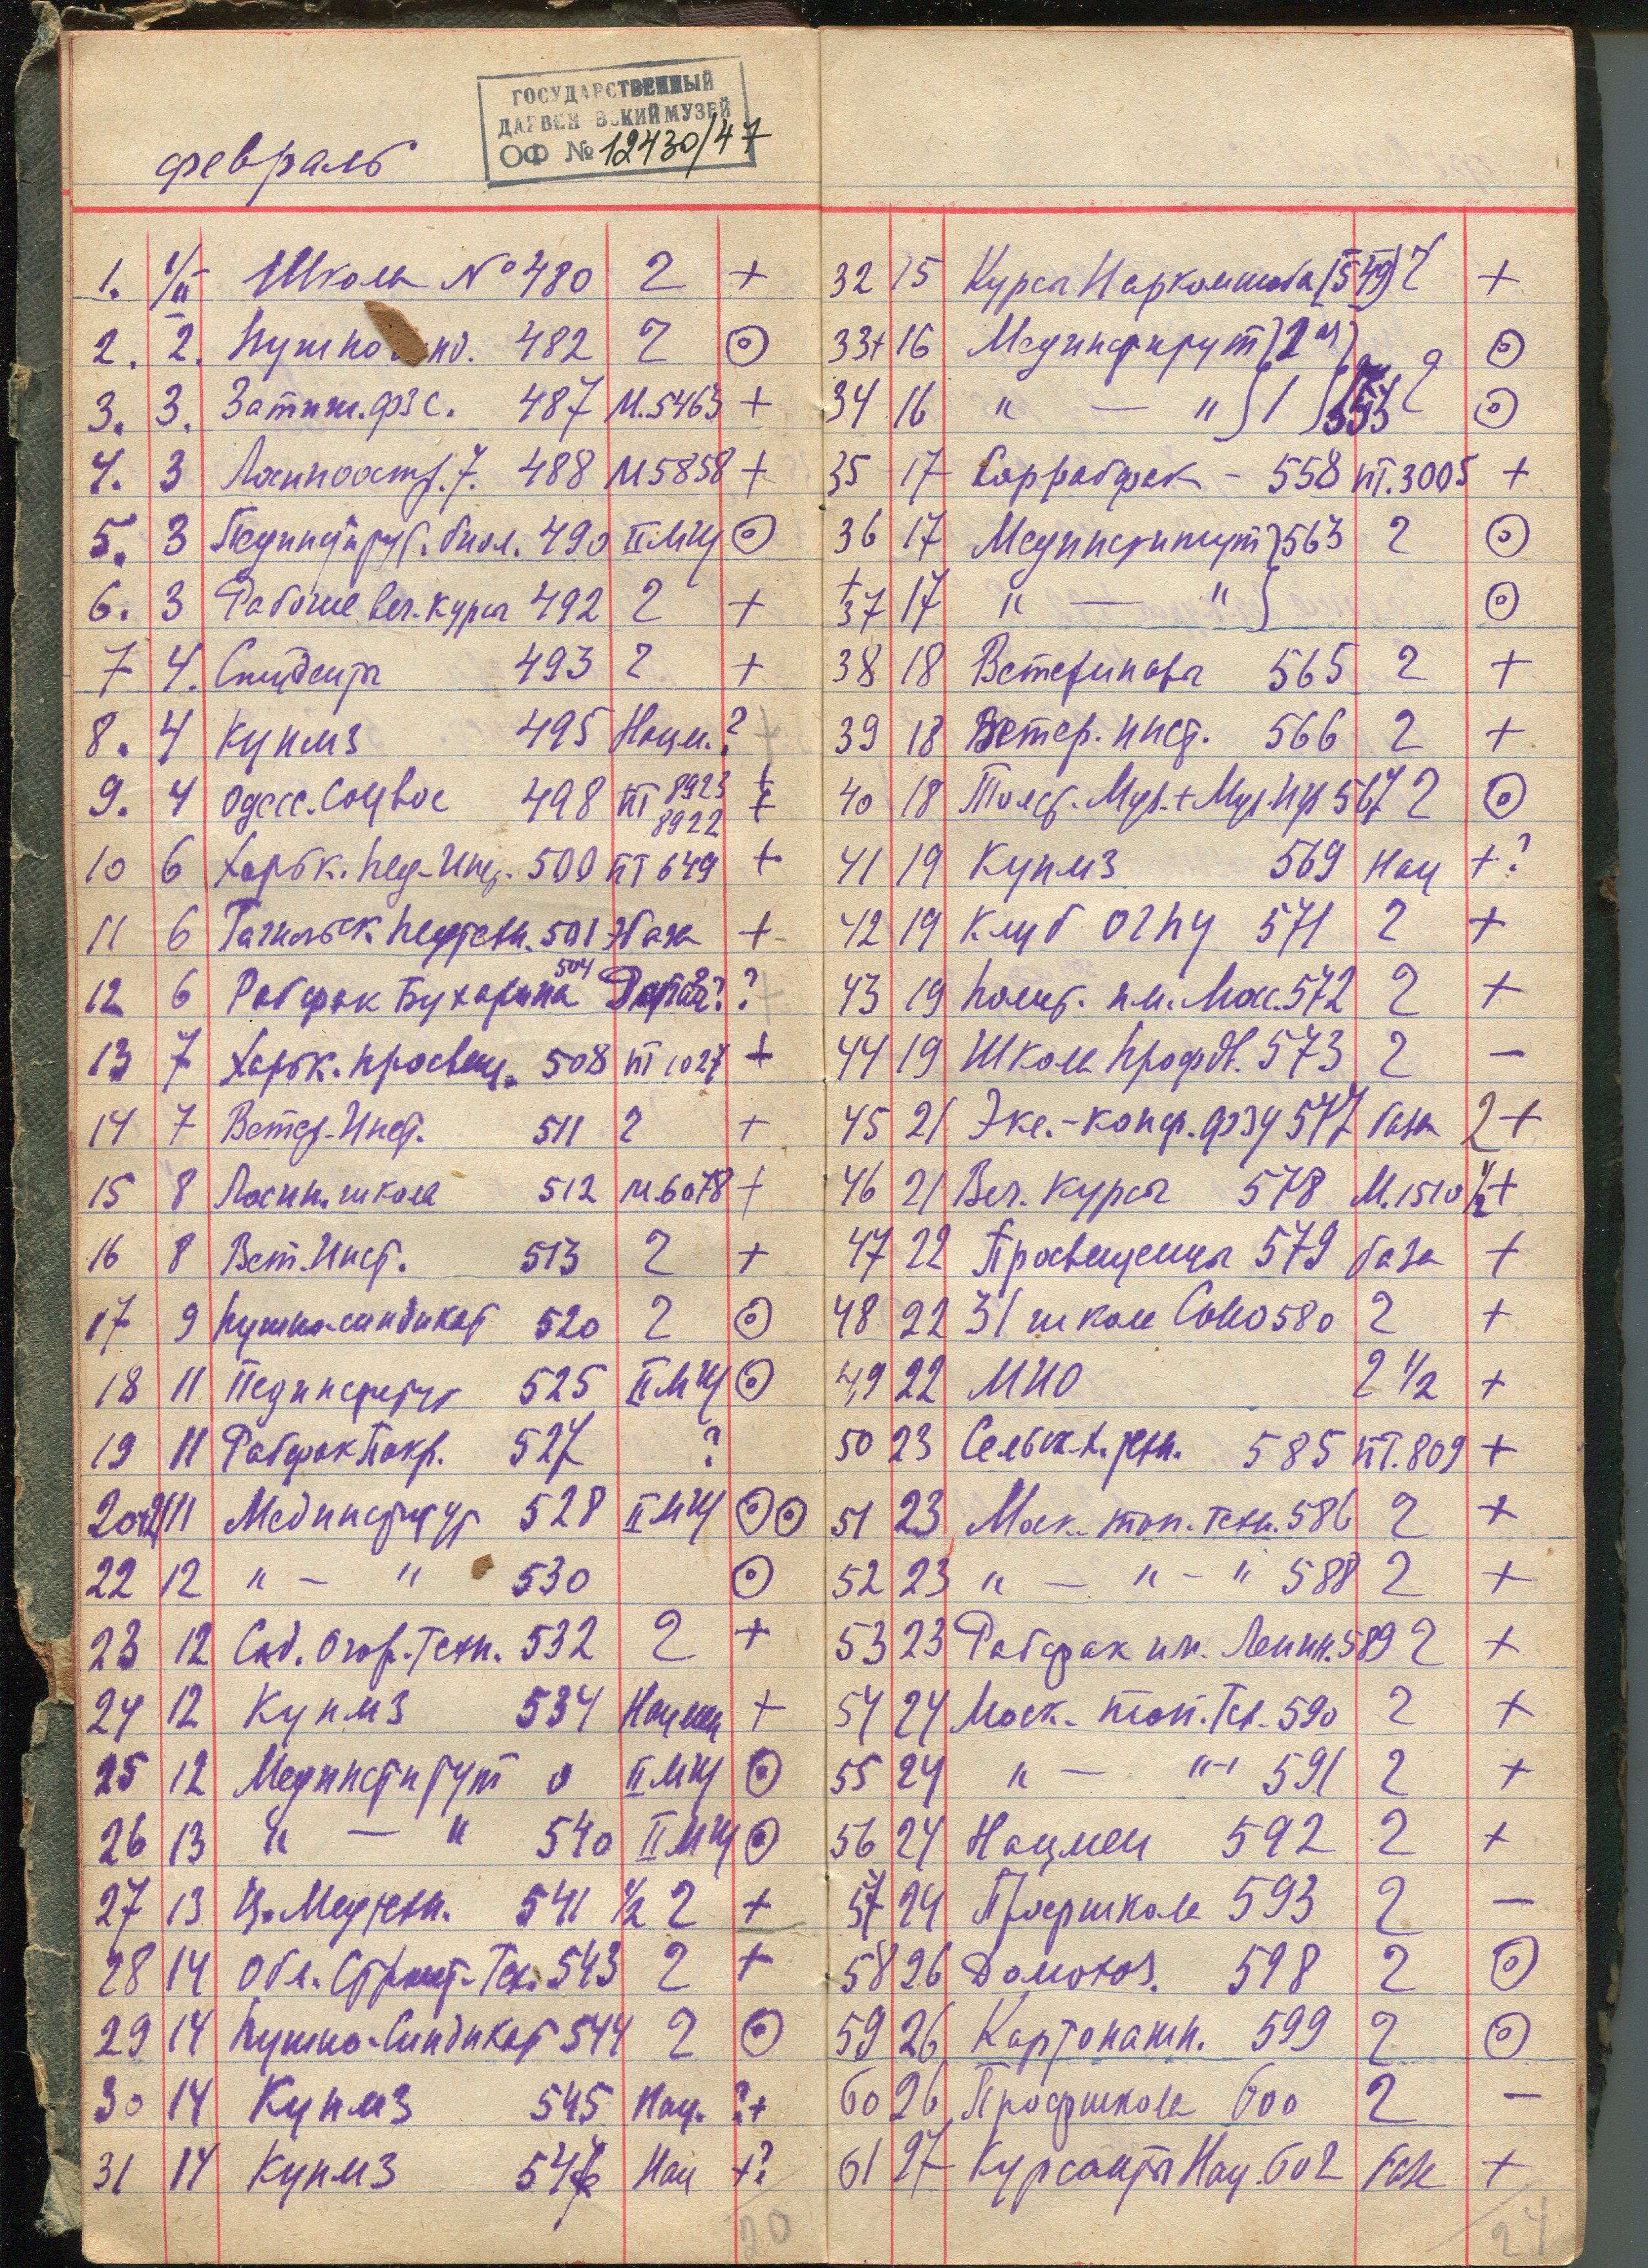 ГОСУДАРСТВЕННЫЙ
ДАРВИНОВСКИЙ МУЗЕЙ
ОФ № 12430/47
февраль
1. 1/II Школа № 480 2 +
2. 2. 482 2 ⊙
3. 3. Затиш. фзс. 487 М.5463 +
4. 3 Лосиноостр. 7. 488 М5858 +
5. 3 Пединститут. биол. 490 II МГУ ⊙
6. 3 Рабочие веч. курсы 492 2 +
7 4. Студенты 493 2 +
8. 4 Купмз 495 Нацм. ?
9. 4 Одесс. Соцвос 498 ПТ 8923 8922 + +
10 6 Харьк. Пед-Инст. 500 ПТ 649 +
11 6 Тагильск. педтехн. 501 Эбаза +
12 6 Рабфак Бухарина 504 ?
13 7 Харьк. просвещ. 508 ПТ 1027 +
14 7 Ветер-Инст. 511 2 +
15 8 Лосин. школа 512 М.6078 +
16 8 Вет. Инст. 513 2 +
17 9 Пушно-синдикат 520 2 ⊙
18 11 Пединститут 525 II МГУ ⊙
19 11 Рабфак Покр. 527 ?
20 и 21 11 Мединститут 528 II МГУ ⊙⊙
22 12 " — " 530 ⊙
23 12 Сад. Огор. Техн. 532 2 +
24 12 Купмз 534 Нацмен +
25 12 Мединститут 0 II МГУ ⊙
26 13 " — " 540 II МГУ ⊙
27 13 Ц. Медтехн. 541 1/2 2 +
28 14 Обл. Строит. Тех. 543 2 +
29 14 Пушно-Синдикат 544 2 ⊙
30 14 Купмз 545 Нац. ?+
31 14 Купмз 547 Нац +?
20
32 15 Курсы Наркомснаба (549) 2 +
33+ 16 Мединститут ⊙
34 16 " — " 553 2 ⊙
35 17 558 ПТ.3005 +
36 17 Мединститут 563 2 ⊙
+37 17 " — " ⊙
38 18 Ветеринары 565 2 +
39 18 Ветер. инст. 566 2 +
40 18 Толст. Муз. + Муз. 567 2 ⊙
41 19 Купмз 569 Нац +?
42 19 Клуб ОГПУ 571 2 +
43 19 Полит. им. Мос. 572 2 +
44 19 Школа Профдв. 573 2 —
45 21 Экс.-конф. фзу 577 база 2+
46 21 Веч. курсы 578 М.1510 1/2 +
47 22 Просвещенцы 579 база +
48 22 31 школа СОНО 580 2 +
49 22 МИО 2 1/2 +
50 23 Сельск-х. техн. 585 ПТ.809 +
51 23 Моск. топ. Техн. 586 2 +
52 23 " — " — " 588 2 +
53 23 Рабфак им. Ленин. 589 2 +
54 24 Моск. топ. Тех. 590 2 +
55 24 " — " 591 2 +
56 24 Нацмен 592 2 +
57 24 Профшкола 593 2 —
58 26 Домохоз. 598 2 ⊙
59 26 Картонажн. 599 2 ⊙
60 26 Профшкола 600 2 —
61 27 Курсанты Нац. 602 база +
24